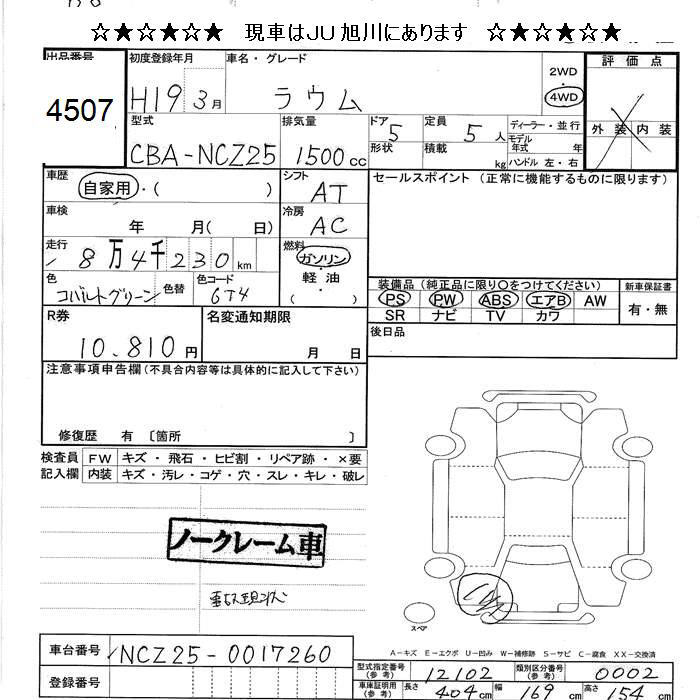 ☆★☆★☆★ 現車はJU旭川にあります ☆★☆★☆★
出品番号 初度登録年月 車名・グレード 2WD 4WD 評価点
4507 H19 3月 ラウム
型式 排気量 ドア 5 定員 5人 ディーラー・並行 外装 内装
CBA-NCZ25 1500cc 形状 積載 kg モデル年式 年 ハンドル 左・右
車歴 シフト セールスポイント (正常に機能するものに限ります)
自家用・( ) AT
車検 冷房
年 月( 日) AC
走行 燃料
8万4千230km ガソリン・軽油・( )
色 色替 色コード
コバルトグリーン 6T4
装備品(純正品に限り○をつけてください) 新車保証書
PS PW ABS エアB AW 有・無
SR ナビ TV カワ
R券 名変通知期限 後日品
10,810円 月 日
注意事項申告欄(不具合内容等は具体的に記入して下さい)
修復歴 有 〔箇所 〕
検査員 FW キズ・飛石・ヒビ割・リペア跡・×要
記入欄 内装 キズ・汚レ・コゲ・穴・スレ・キレ・破レ
ノークレーム車
スペア
A-キズ E-エクボ U-凹み W-補修跡 S-サビ C-腐食 XX-交換済
車台番号 NCZ25-0017260
登録番号
型式指定番号(参考) 12102 類別区分番号(参考) 0002
車庫証明用(参考) 長さ 404cm 幅 169cm 高さ 154cm